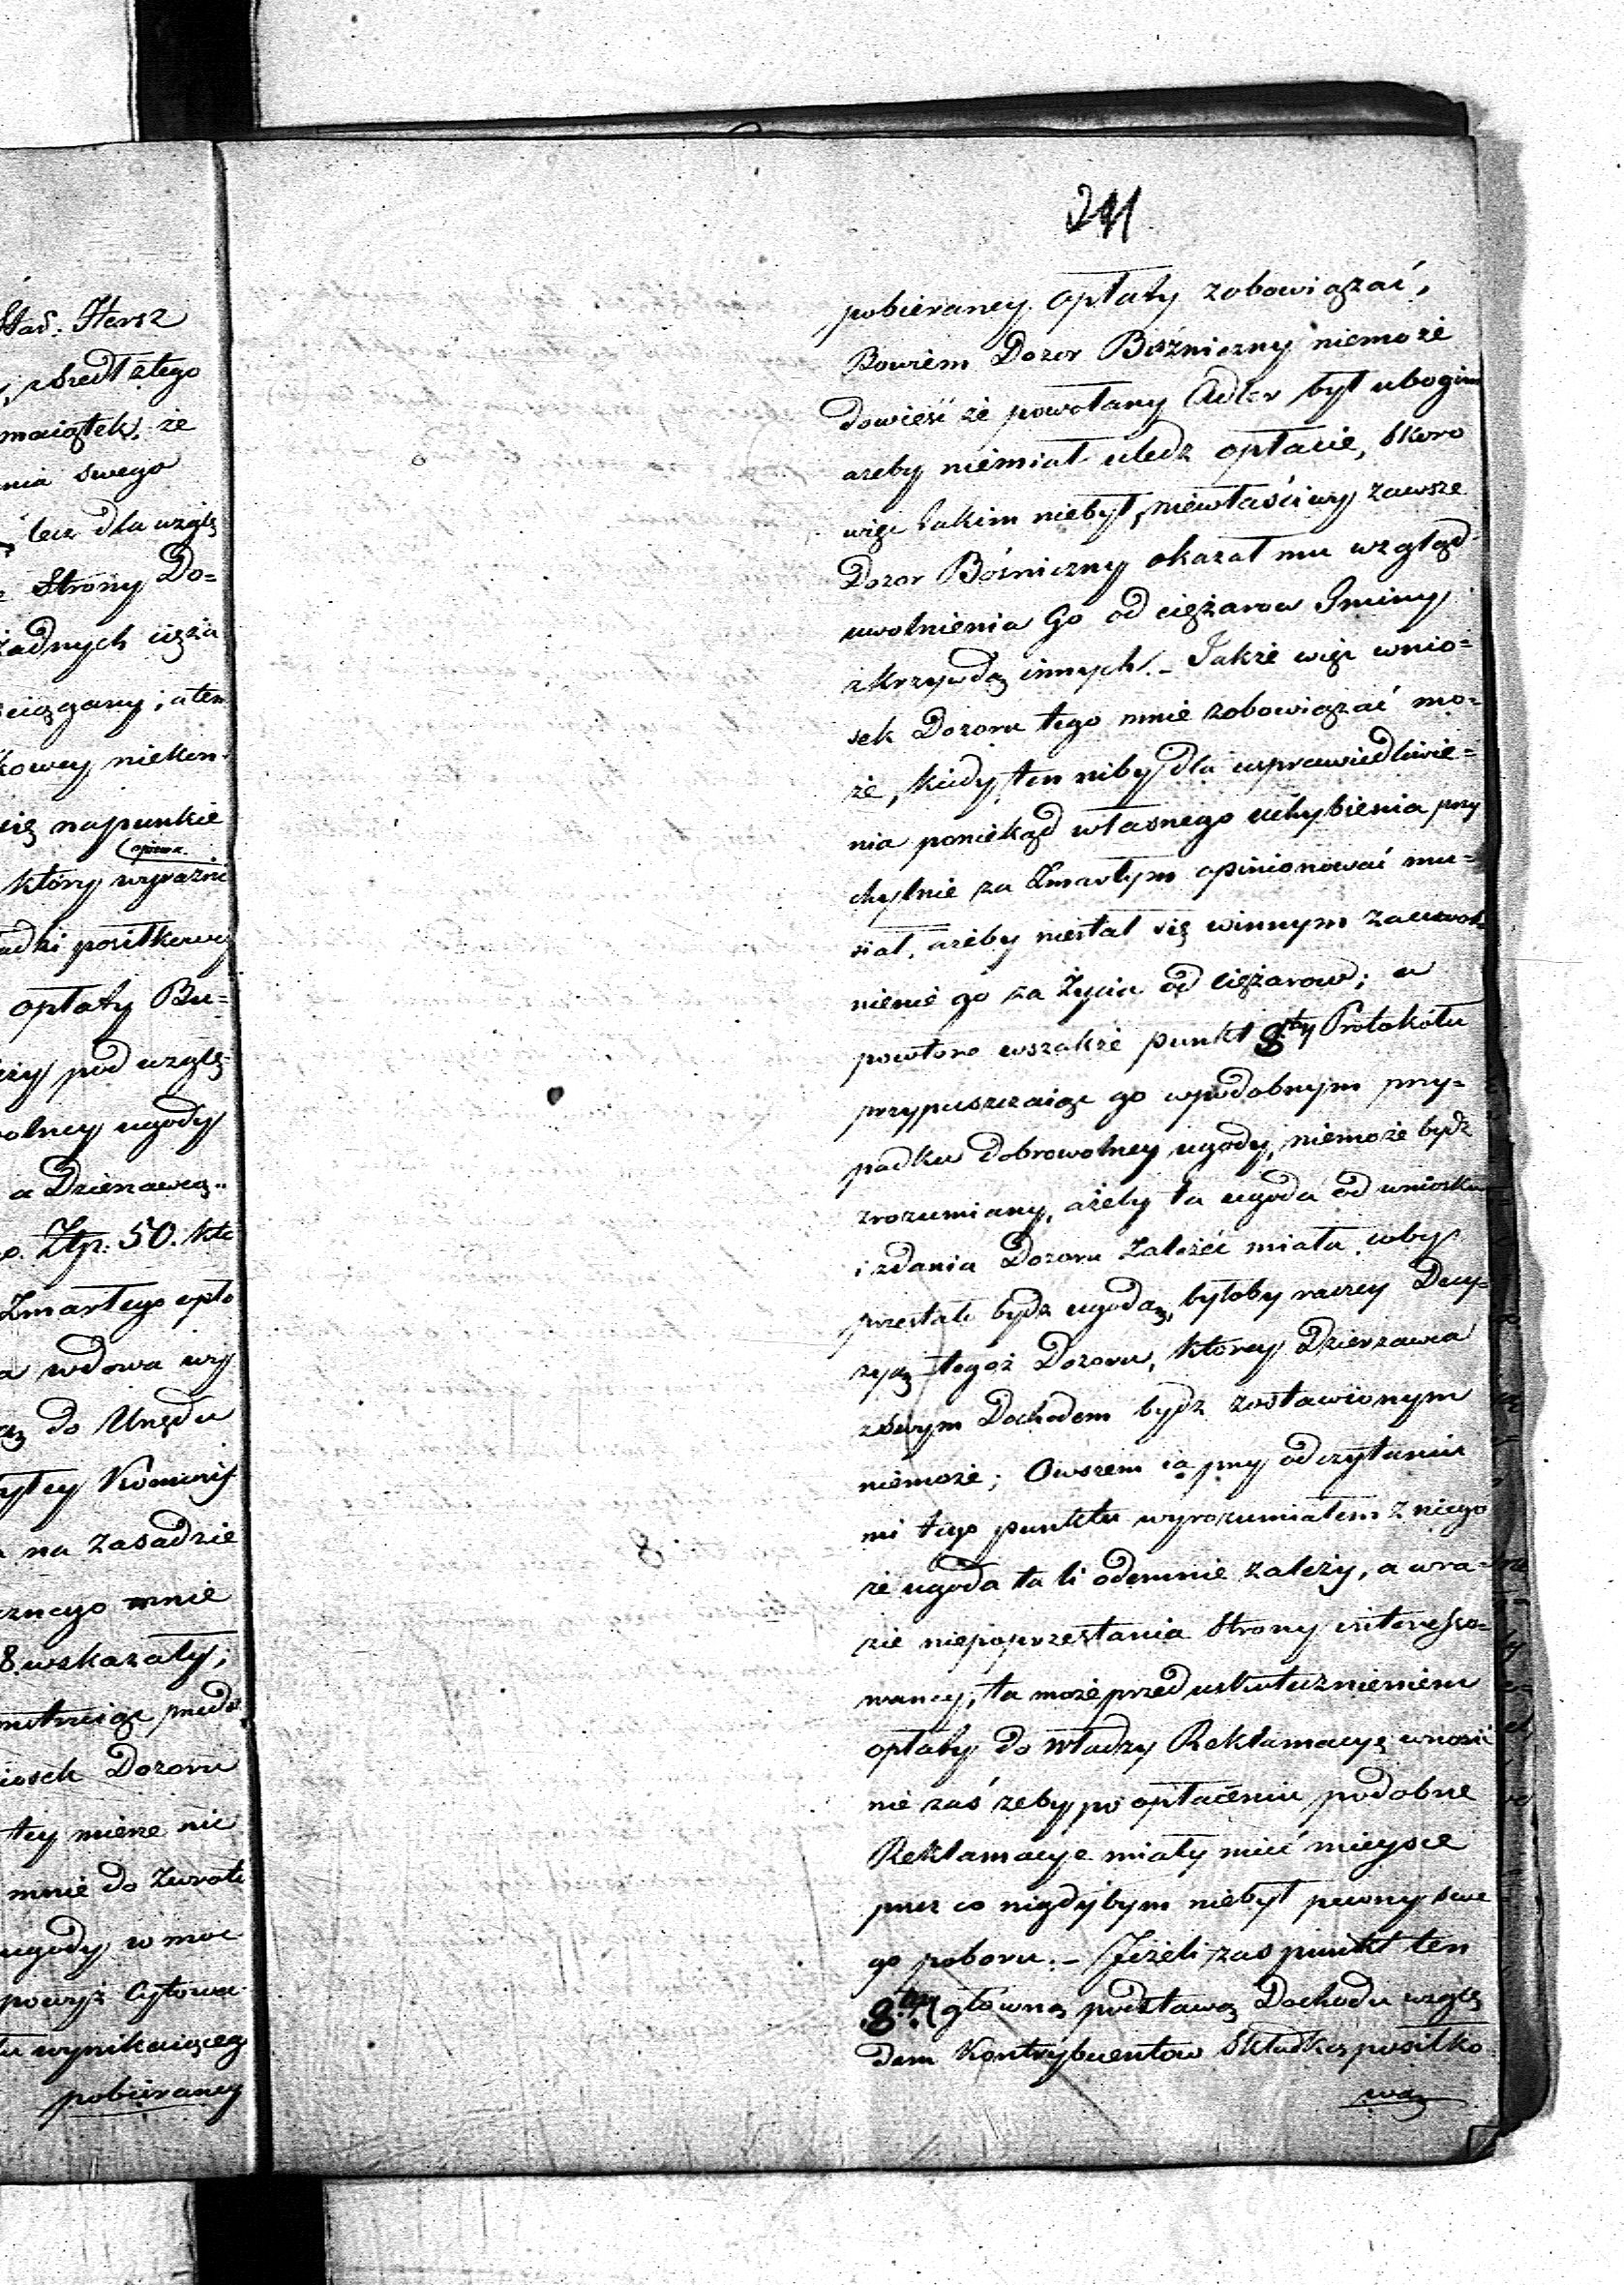 Star. Hersz
zszedł ztego
maiątek, że
nia swego
lecz dla wzglę
Strony Do=
żadnych cięża
ściągany; a ten
kowey niekon
się napunkie
opiewa
który wyraźni
adki posiłkowey
opłaty Bu=
pod wzglę=
olney ugody
a Dzierżawcą
Złp: 50. któ
Zmarłego opła
a wdowa wy
do Urzędu
Kommiss
na zasadzie
cznego mnie
8. wskazały;
iosek Dozoru
tey mierze nie
mnie do Zwrotu
ugody w moc
powyż Cytowa
wynikaiącego
pobieraney
241
pobieraney opłaty zobowiązać,
Bowiem Dozor Bóżniczny niemoże
dowieść że powołany Adler był ubogim
ażeby niemiał uledz opłacie, skoro
więc takim niebył, niewłaściwy zawsze
Dozor Bóżniczny okazał mu wzgląd
uwolnienia Go od ciężarow Gminy
zkrzywdą innych. – Jakże więc wnio=
sek Dozoru tego mnie zobowiązać mo=
że, kiedy ten niby dla usprawiedliwie=
nia poniekąd własnego uchybienia przy
chylnie za Zmarłym opinionować mu=
siał, ażeby niestał się winnym zauwol=
nienie go za Życia od ciężarow; a
powtore wszakże punkt 8my Protokółu
przypuszczaiąc go wpodobnym przy=
padku dobrowolney ugody, niemoże bydz
zrozumiany, ażeby ta ugoda od wniosku
i zdania Dozoru Zależéć miała, coby
przestała bydz ugodą, byłoby raczey Decy=
zyą tegoż Dozoru, którey Dzierzawca
zswym Dochodem bydz zostawionym
niemoże; Owszem ia przy odczytaniu
mi tego punktu wyrozumiałem z niego
że ugoda ta li odemnie zależy, a wra=
zie niepoprzestania Strony interesso=
waney, ta może przed uskutecznieniem
opłaty do Władzy Reklamacyę wnosić
nie zaś żeby po opłaceniu podobne
Reklamacye miały mieć mieysce
przez co nigdybym niebył pewny swe
go poboru. – Jeżeli zas punkt ten
8my główną podstawą Dochodu wzglę
dem Kontrybuentow Składką posiłko
wą
8